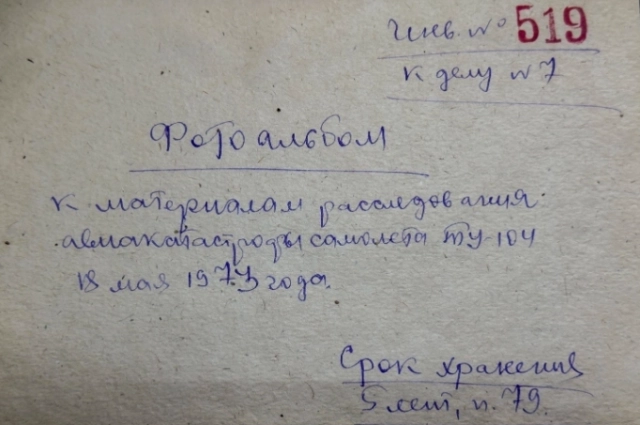 Инв. № 519
к делу № 7
Фотоальбом
к материалам расследования
авиакатастрофы самолета ТУ-104
18 мая 1973 года.
Срок хранения
5 лет, п. 79.